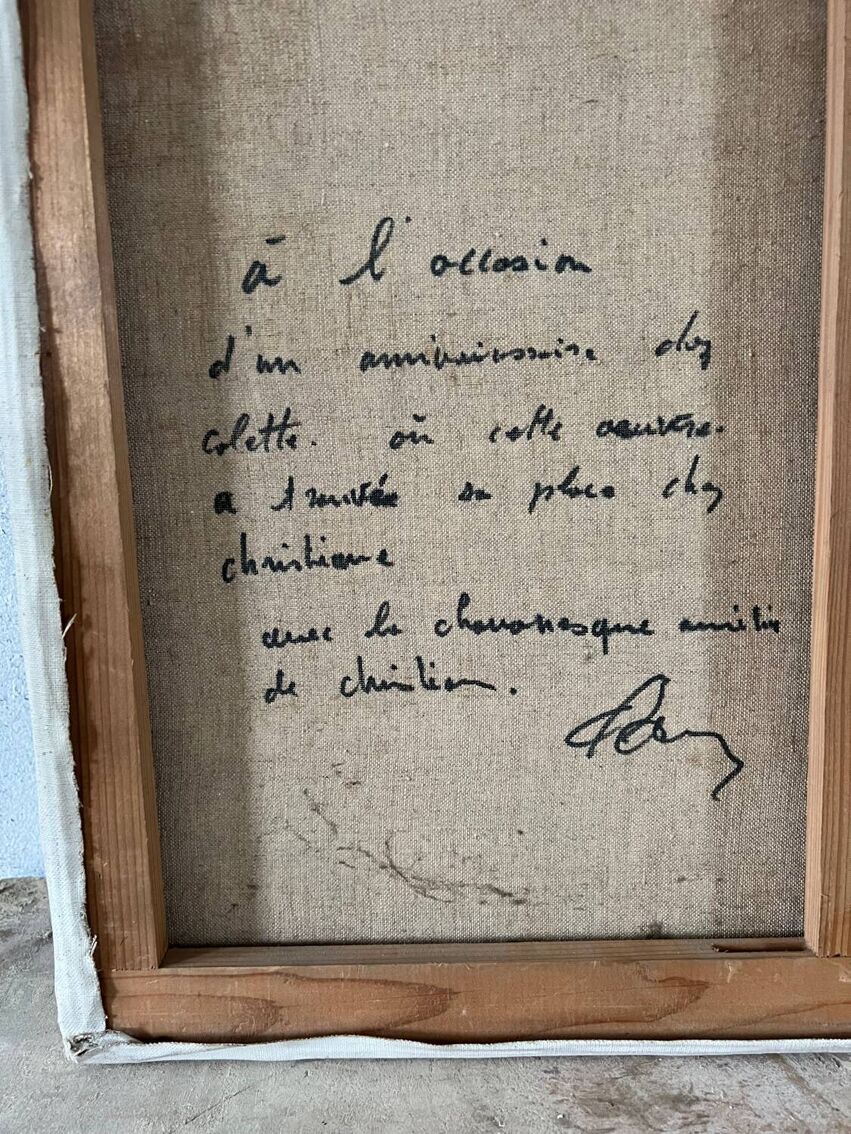 à l'occasion
d'un anniversaire chez
colette. où cette oeuvre
a trouvée sa place chez
christiane
avec la chouanesque amitié
de christian.